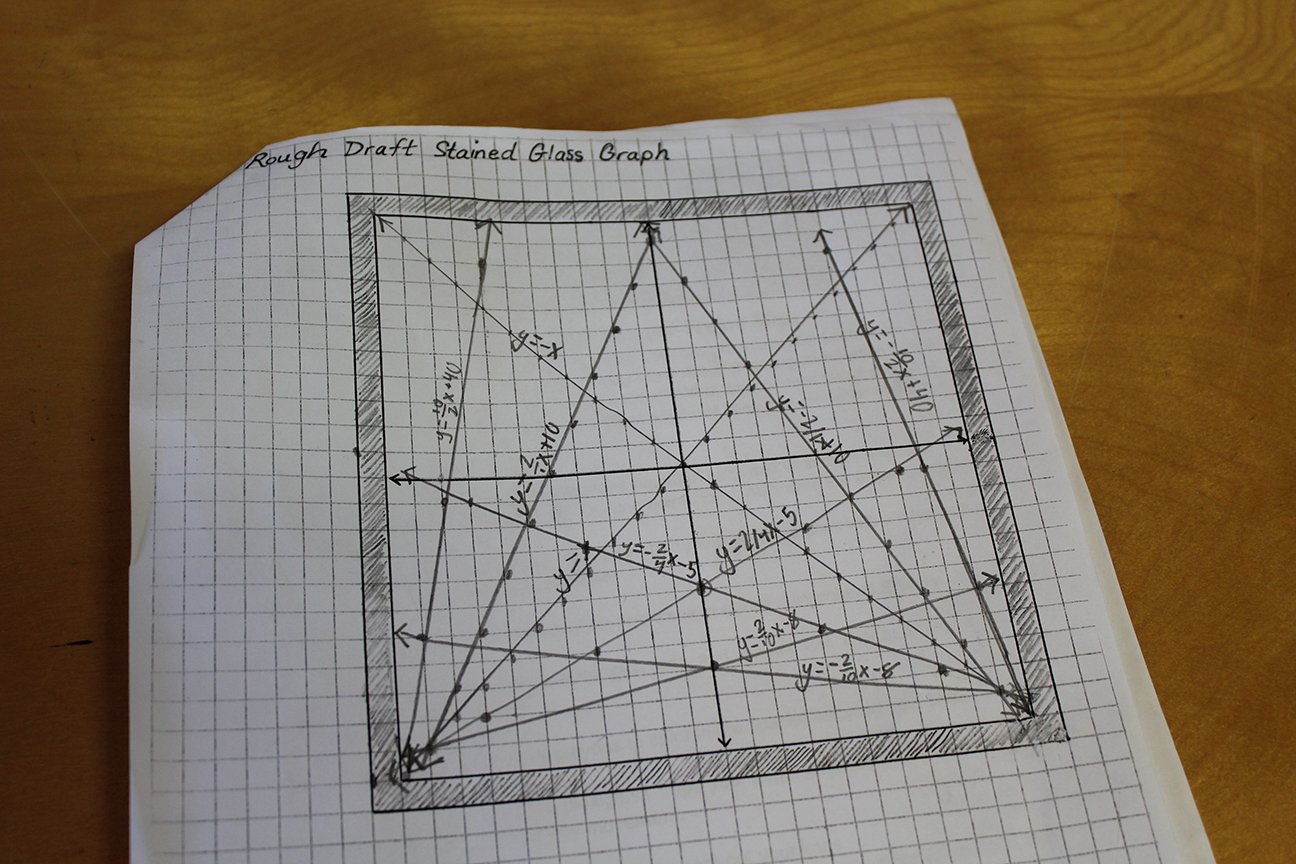 Rough Draft Stained Glass Graph
y=-x
y=10/2x+40
y=-10/2x+40
y=-2/1x+10
y=2/4x-5
y=-2/4x-5
y=
y=2/10x-8
y=-2/10x-8